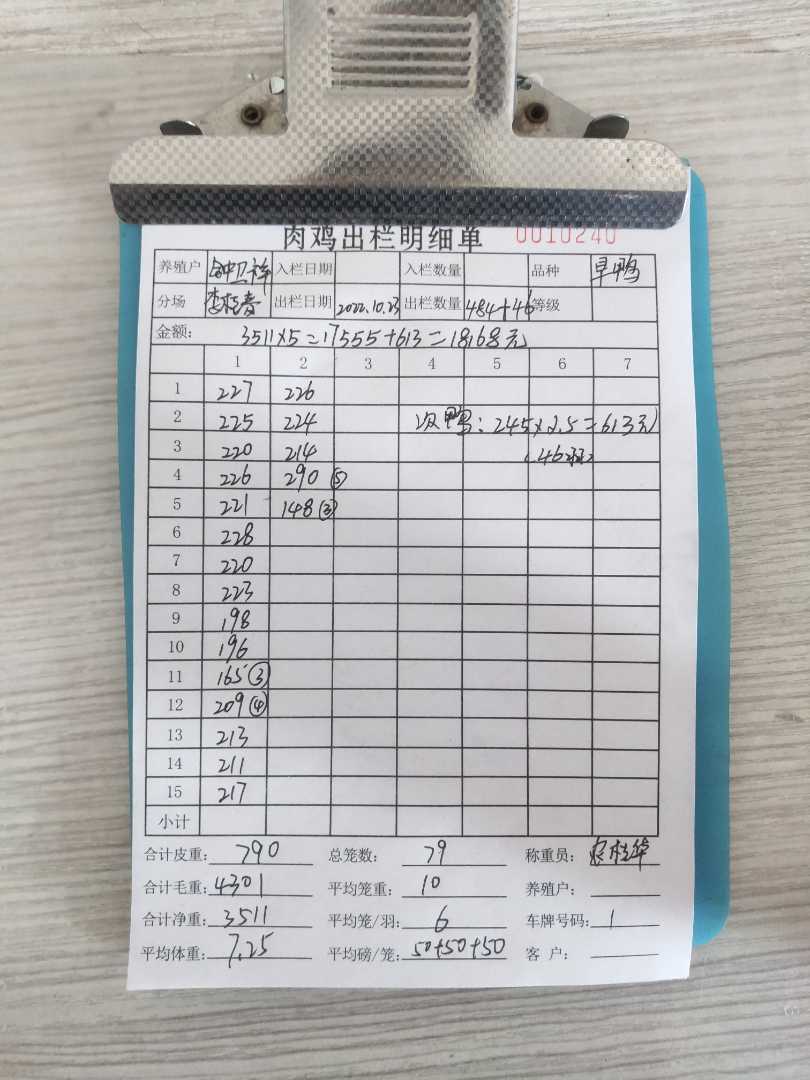 肉鸡出栏明细单 0010240
养殖户 钟卫祥 入栏日期 入栏数量 品种 旱鸭
分场 李桂春 出栏日期 2022.10.23 出栏数量 484+46 等级
金额: 3511×5=17555+613=18168元
1 2 3 4 5 6 7
1 227 226
2 225 224 次鸭:245×2.5=613元
3 220 214 (46羽)
4 226 290 ⑤
5 221 148 ③
6 228
7 220
8 223
9 198
10 196
11 165 ③
12 209 ④
13 213
14 211
15 217
小计
合计皮重: 790 总笼数: 79 称重员:
合计毛重: 4301 平均笼重: 10 养殖户:
合计净重: 3511 平均笼/羽: 6 车牌号码: 1
平均体重: 7.25 平均磅/笼: 50+50+50 客 户: